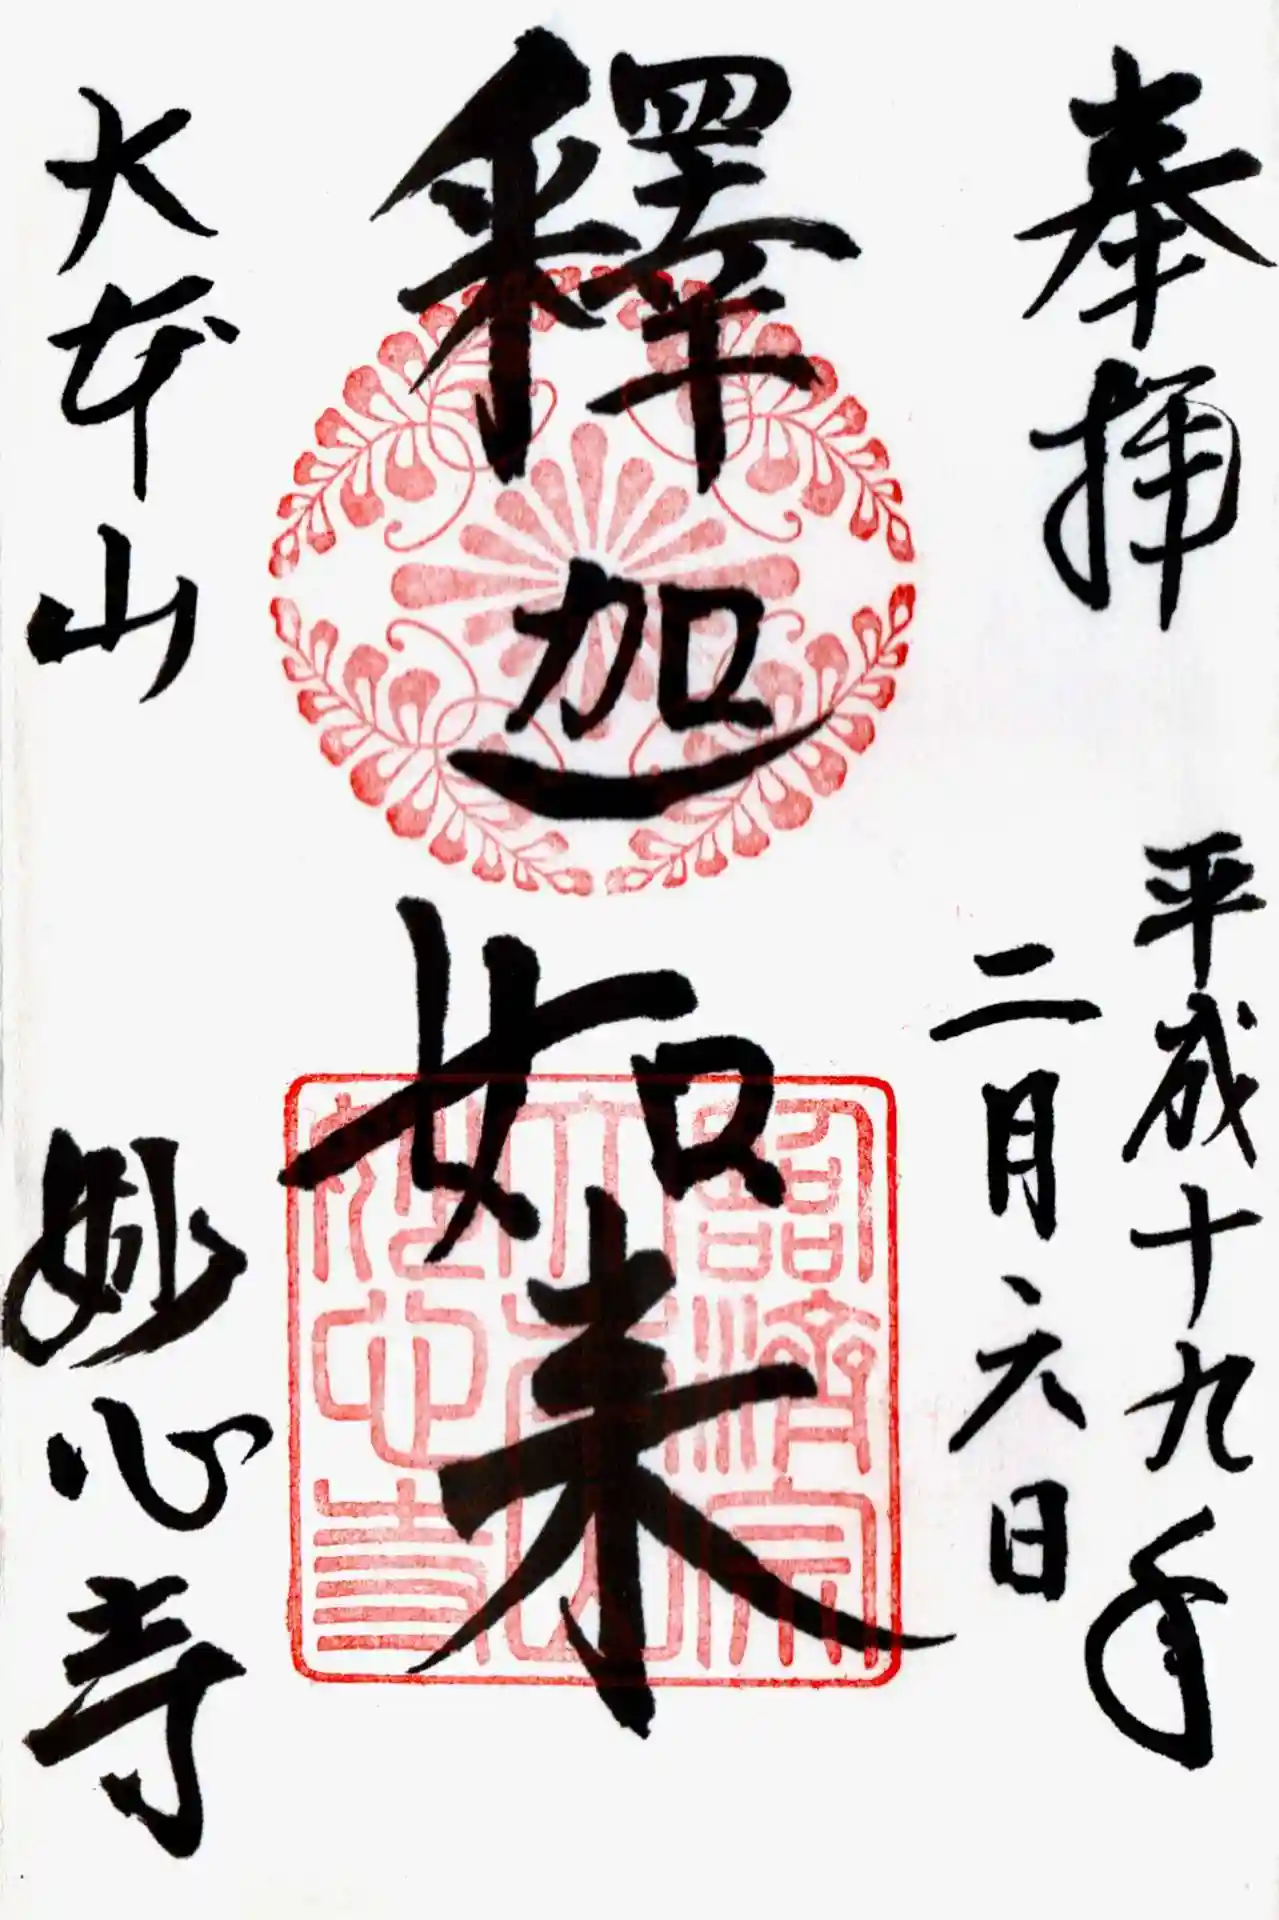 奉拝
平成十九年
二月六日
釋迦如来
臨済宗
大本山
妙心寺
大本山
妙心寺